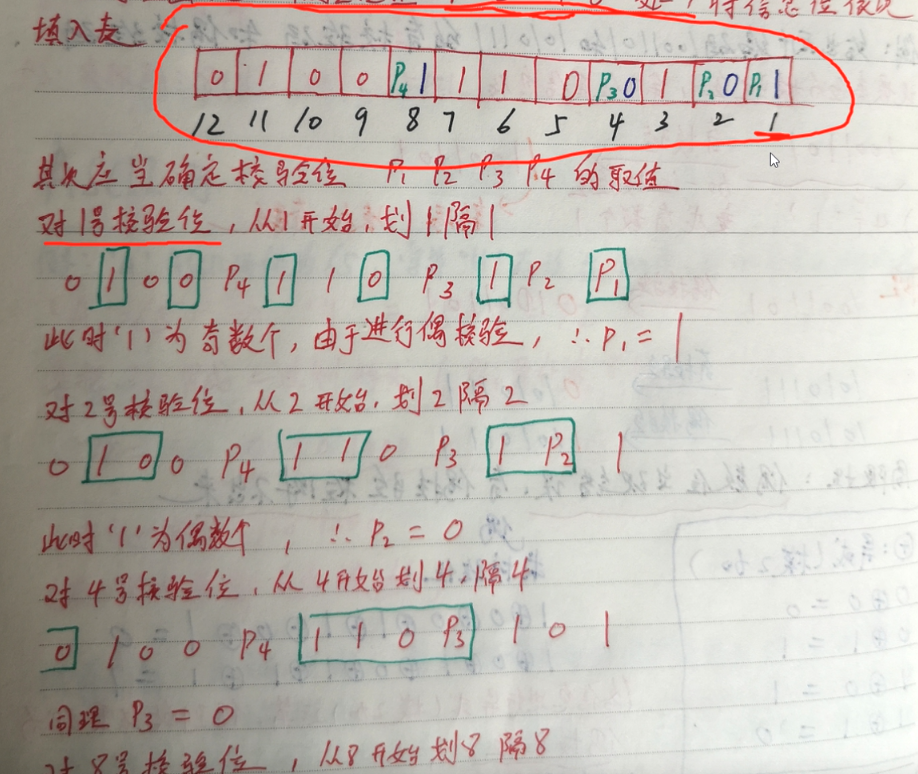 处，将信息位依次
填入表
0 1 0 0 P₄1 1 1 0 P₃0 1 P₂0 P₁1
12 11 10 9 8 7 6 5 4 3 2 1
其次应当确定校验位 P₁ P₂ P₃ P₄ 的取值
对1号校验位，从1开始，划1隔1
0 1 0 0 P₄ 1 1 0 P₃ 1 P₂ P₁
此时'1'为奇数个，由于进行偶校验，∴P₁=1
对2号校验位，从2开始，划2隔2
0 1 0 0 P₄ 1 1 0 P₃ 1 P₂ 1
此时'1'为偶数个，∴P₂=0
对4号校验位，从4开始划4，隔4
0 1 0 0 P₄ 1 1 0 P₃ 1 0 1
同理 P₃=0
对8号校验位，从8开始划8隔8